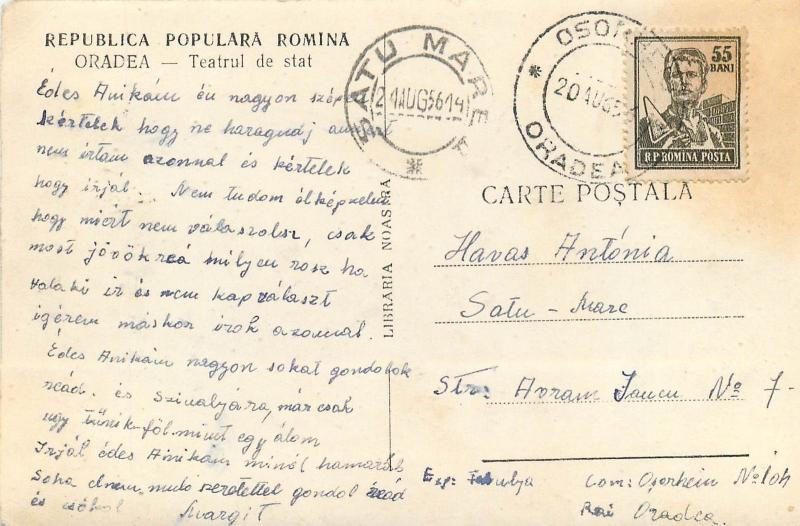 REPUBLICA POPULARĂ ROMÎNĂ
ORADEA — Teatrul de stat
Édes Anikám én nagyon szépen
kértelek hogy ne haragudj amiért
nem írtam azonnal és kértelek
hogy írjál. Nem tudom elképzelni
hogy miért nem válaszolsz, csak
most jövök reá milyen rosz ha
valaki ir és nem kap választ
igérem máskor irok azonnal.
Édes Anikám nagyon sokat gondolok
reád. és Szivalyára, már csak
ugy tűnik föl mint egy álom
Irjál édes Anikám minél hamarább
Soha el nem muló szeretettel gondol reád
és csókol Margit
SATU MARE
21AUG56 14
LIBRARIA NOASTRA
OSORHEI
20AUG5
ORADEA
55
BANI
R.P. ROMINA POSTA
CARTE POȘTALĂ
Havas Antónia
Satu - Mare
Str: Avram Iancu No 7-
Exp: Com: Oșorheiu No 104
Rai Oradea.